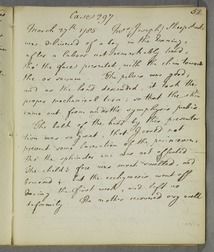 52
Case 297
March 27th 1785 Mrs Joseph Sharp
was delivered of a boy in the evening,
after a labour not remarkably hard,
tho' the face presented, with the chin towards
the os sacrum. The pelvis was good,
and as the head descended, it took the
proper mechanical turn, so that the chin
came out from under the symphysis pubis.
The bulk of the head by this presenta-
tion was so great, that I could not
prevent some laceration of the perinaeum,
tho' the sphincter ani was not affected.
The child's face was most swelled, and
bruised; but the ecchymosis went off
during the first week, and left no
deformity. The mother recovered very well